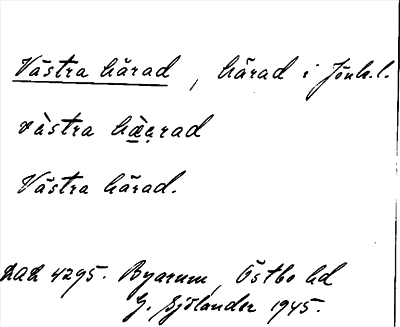 Västra härad, härad i Jönk. l.
västra hä̀ạrad
Västra härad.
DAL 4295. Byarum, Östbo hd
G. Sjölander 1945.